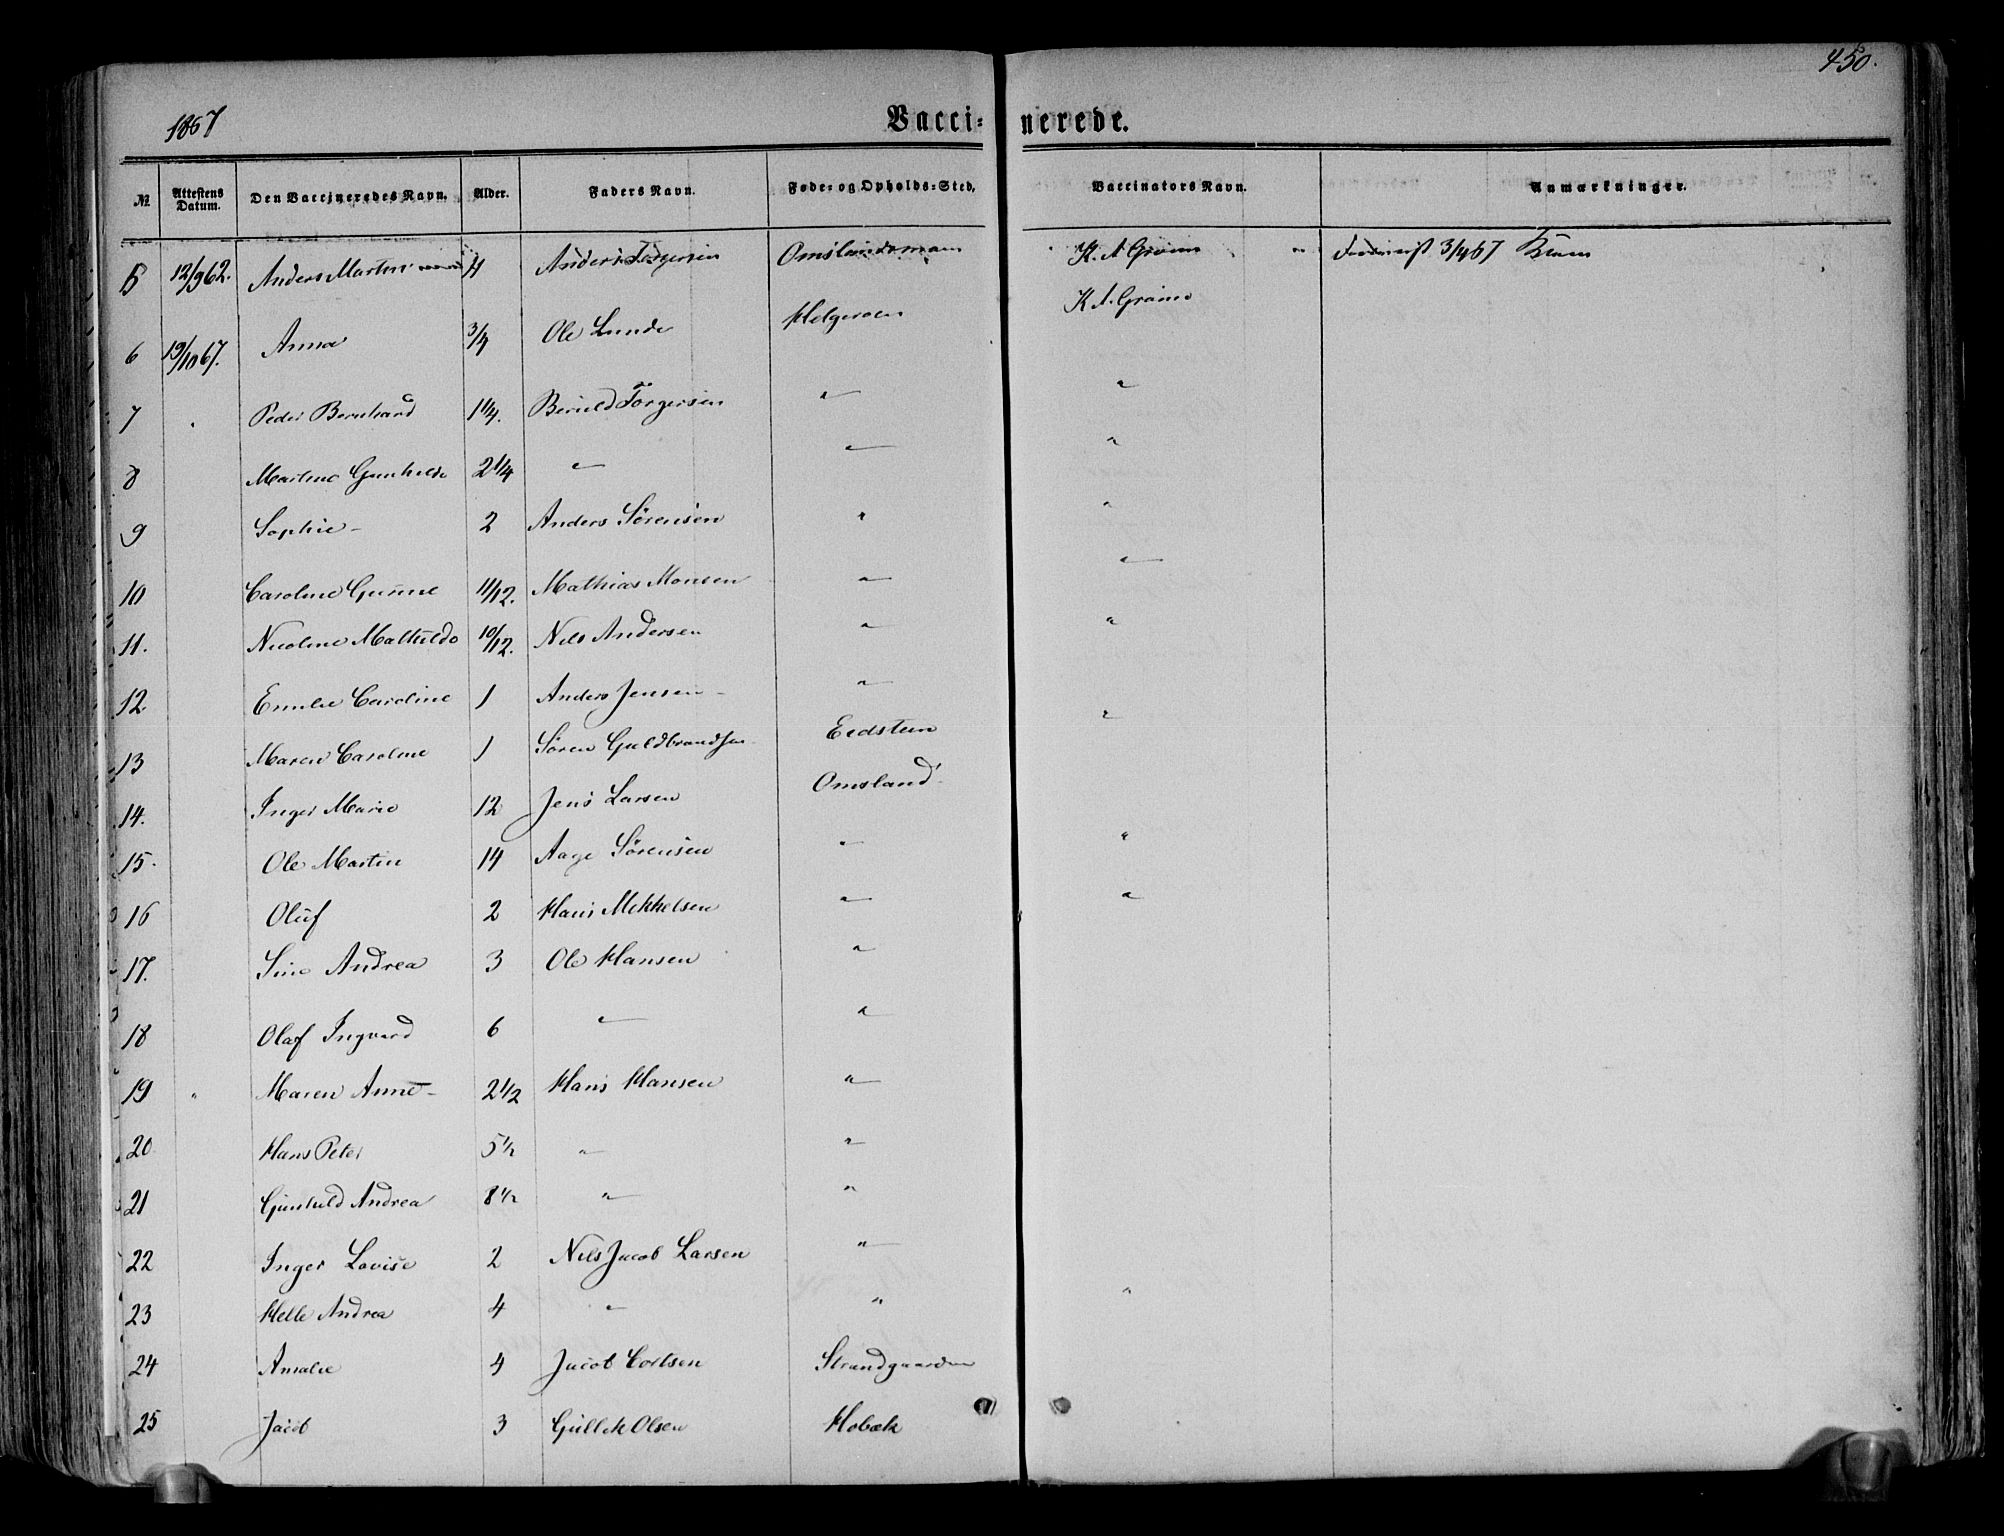 450.
1867 Vaccinerede.
№ Attestens Datum. Den Vaccineredes Navn. Alder. Faders Navn. Føde- og Opholds-Sted. Vaccinators Navn. Anmærkninger.
5 12/9 62. Anders Martin 4 Anders Torgersen K. A. Grøim " 3/4 67
6 19/10 67. Anna 3/4 Ole Lunde Helgeroen K A. Grøim
7 " Peder Bernhard 1 1/4. Beruld Torgersen " "
8 Martine Gunhilde 2 1/4 " " "
9 Sophie - 2 Anders Sørensen " "
10 Caroline Gurine 11/12. Mathias Monsen " "
11. Nicoline Mathilde 10/12. Nils Andersen " "
12. Emilie Caroline 1 Anders Jensen - " "
13 Maren Caroline 1 Søren Guldbrandsen Eidsten
14. Inger Marie 12 Jens Larsen Omsland
15. Ole Martin 14 Aage Sørensen " "
16 Oluf 2 Hans Mikkelsen " "
17. Sine Andrea 3 Ole Hansen "
18 Olaf Ingvard 6 " "
19 " Maren Anne - 2 1/2 Hans Hansen "
20 Hans Peter 5 1/2 " "
21 Gunhild Andrea 8 1/2 " "
22 Inger Lovise 2 Nils Jacob Larsen "
23 Helle Andrea 4 " " "
24 Amalie 4 Jacob Cortsen Strandgaarden
25 Jacob 3 Gullik Olsen Hobæk